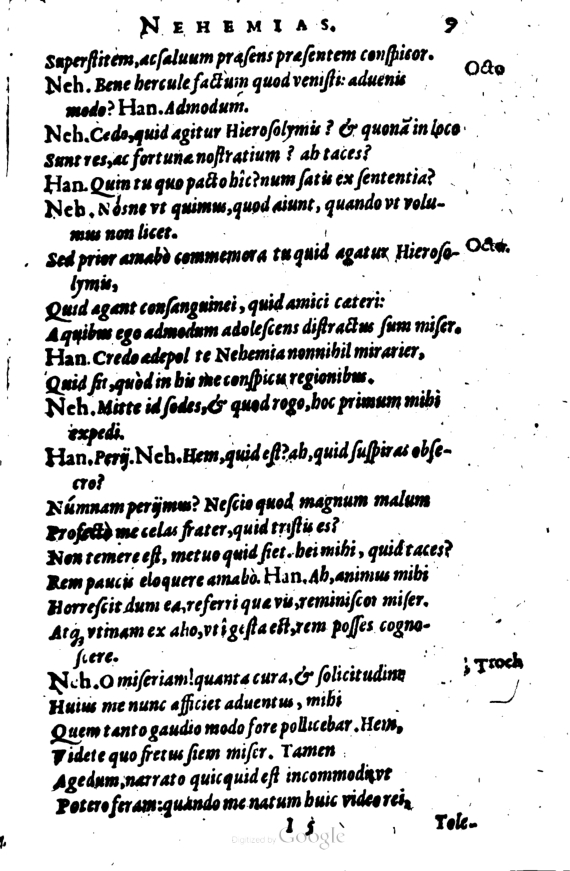 NEHEMIAS. 9
Superſtitem, ac ſaluum præſens præſentem conſpicor.
Octo
Neh. Bene hercule factum quod veniſti: aduenis
modo? Han. Admodum.
Neh. Cedo, quid agitur Hieroſolymis? & quonã in loco
Sunt res, ac fortunæ noſtratium? ah taces?
Han. Quin tu quo pacto hîc? num ſatis ex ſententia?
Neh. Nósne vt quimus, quod aiunt, quando vt volu-
mus non licet.
Sed prior amabò commemora tu quid agatur Hieroſo-
Octo.
lymis,
Quid agant conſanguinei, quid amici cæteri:
A quibus ego admodum adoleſcens diſtractus ſum miſer.
Han. Credo ædepol te Nehemia nonnihil mirarier,
Quid ſit, quòd in his me conſpicu regionibus.
Neh. Mitte id ſodes, & quod rogo, hoc primum mihi
expedi.
Han. Perij. Neh. Hem, quid eſt? ah, quid ſuſpiras obſe-
cro?
Númnam perijmus? Neſcio quod magnum malum
Profectò me celas frater, quid triſtis es?
Non temere eſt, metuo quid ſiet. hei mihi, quid taces?
Rem paucis eloquere amabò. Han. Ah, animus mihi
Horreſcit dum ea, referri quæ vis, reminiſcor miſer.
Atq, vtinam ex alio, vti geſta eſt, rem poſſes cogno-
ſcere.
Neh. O miſeriam! quanta cura, & ſolicitudine
; Troch
Huius me nunc afficiet aduentus, mihi
Quem tanto gaudio modo fore pollicebar. Hem,
Videte quo fretus ſiem miſer. Tamen
Agedum, narrato quicquid eſt incommodi, vt
Potero feram: quando me natum huic video rei,
I 5
Tole-
Digitized by Google